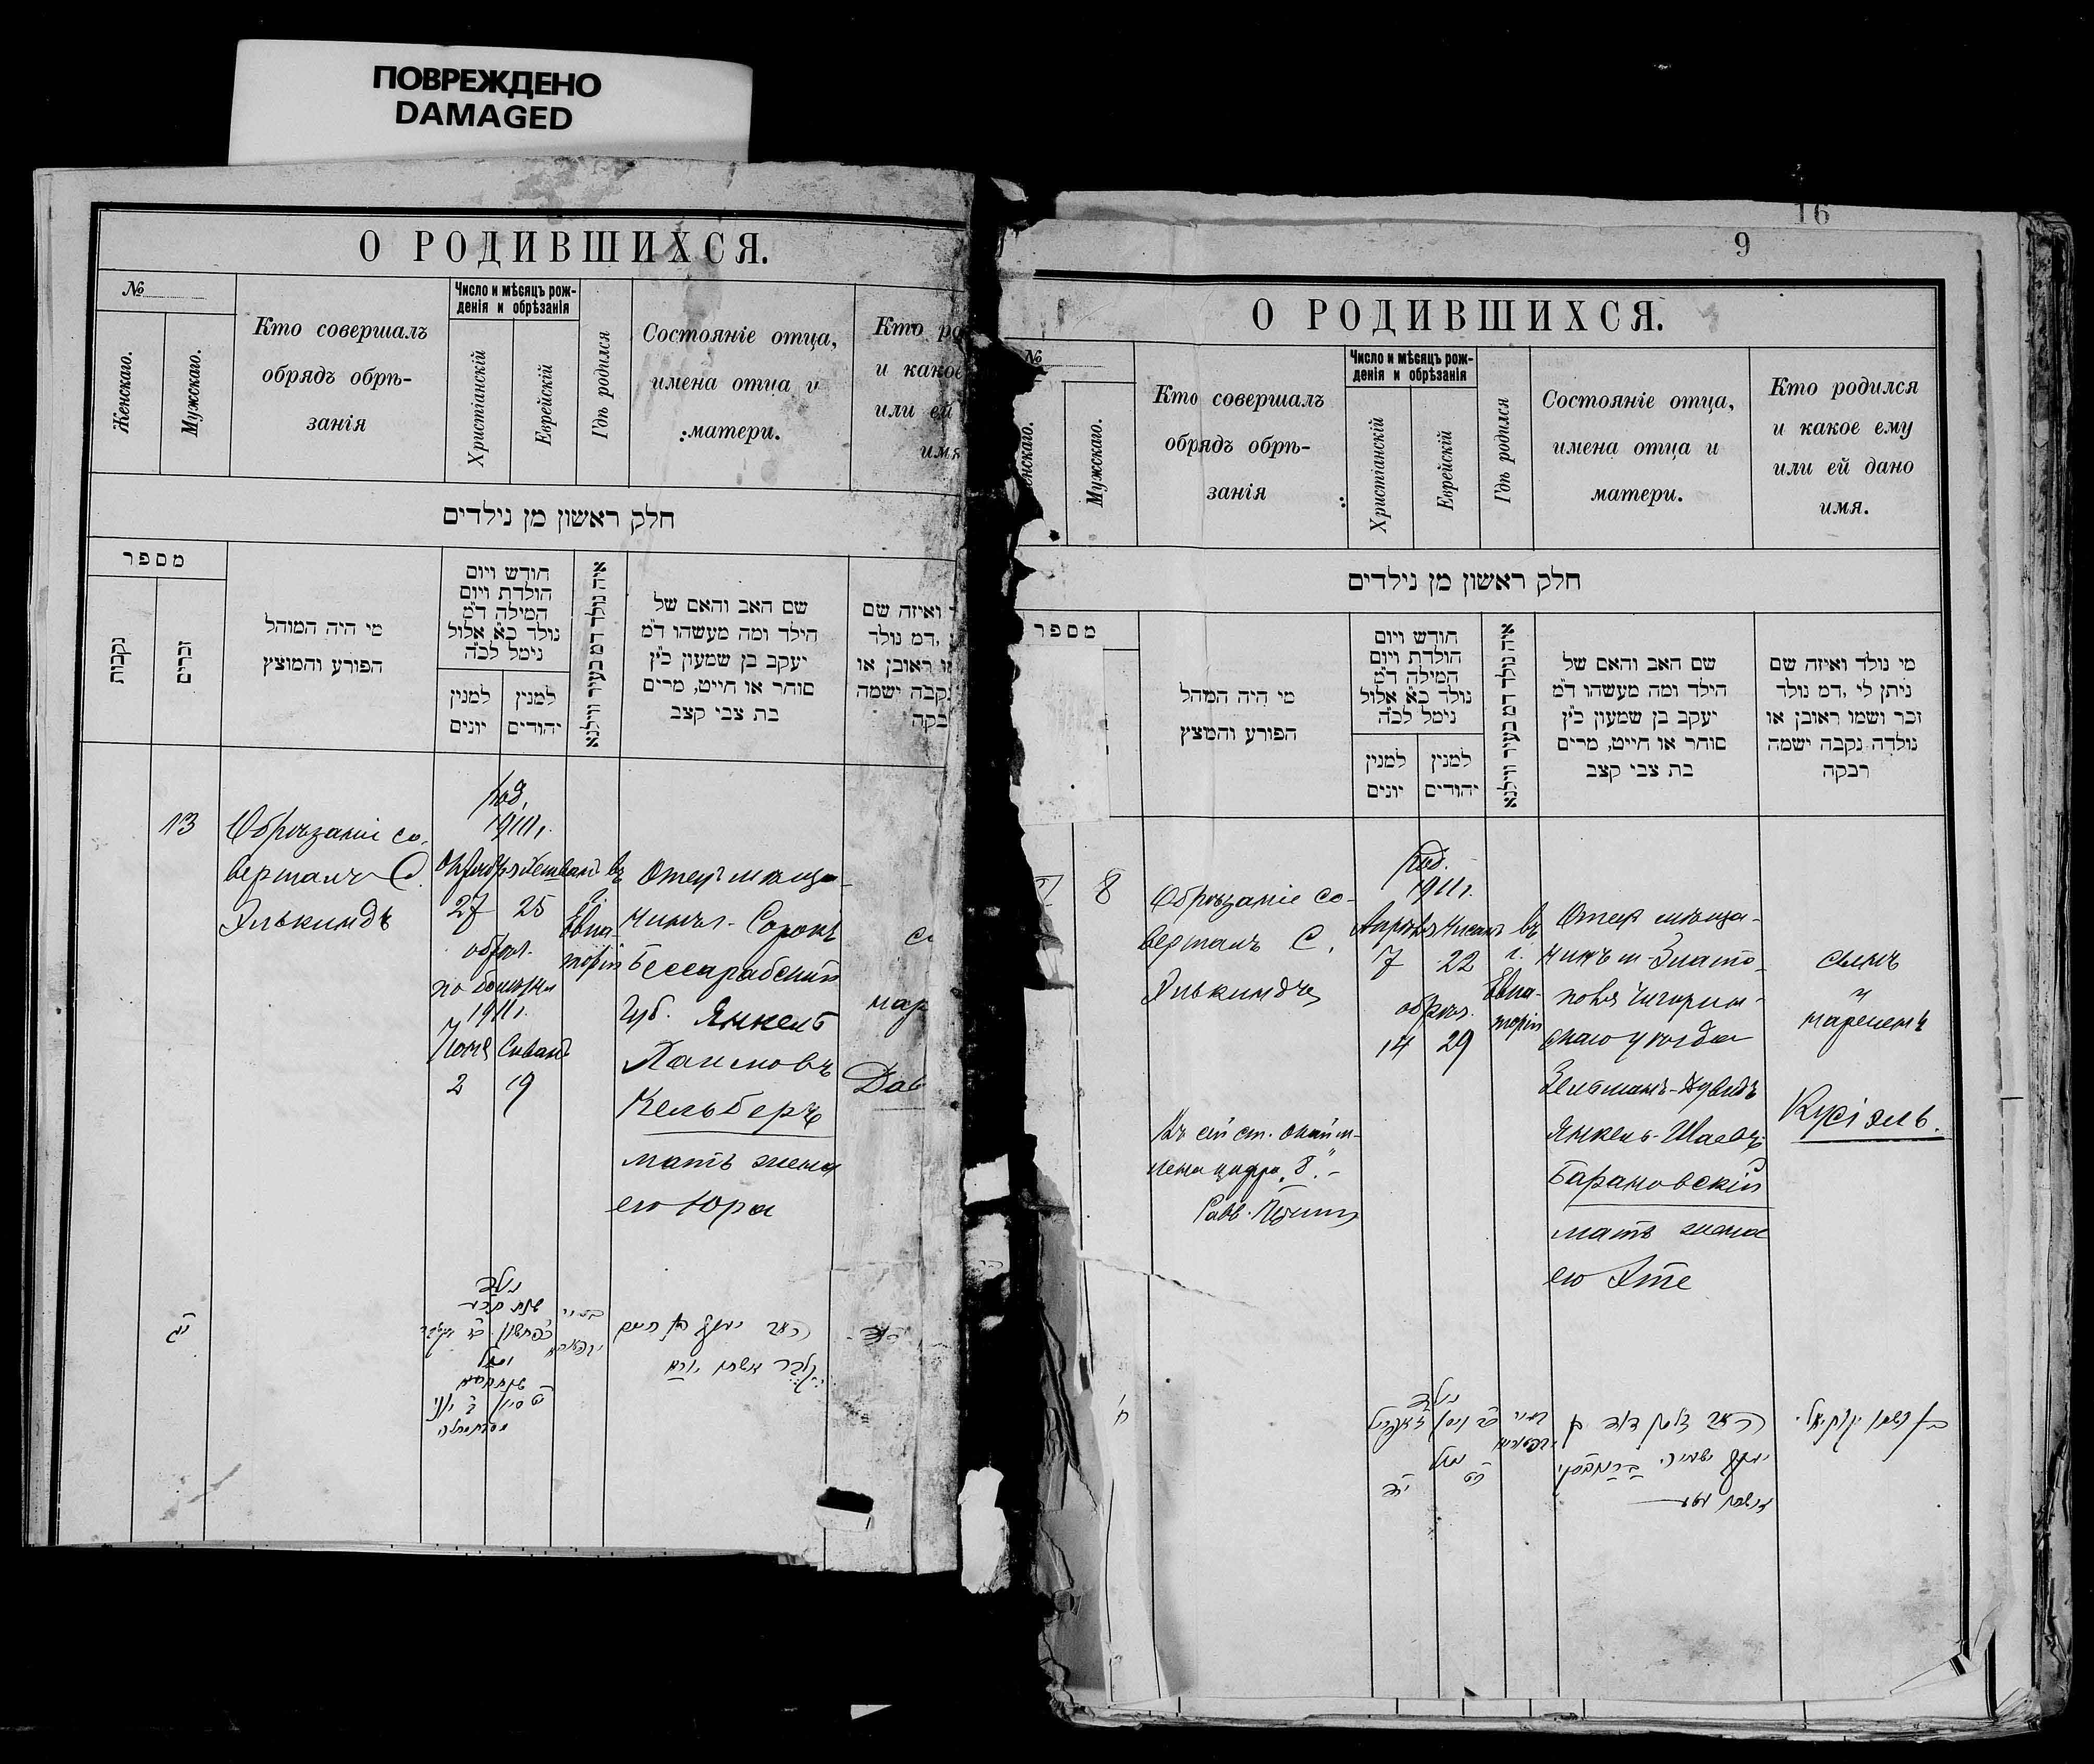 ПОВРЕЖДЕНО
DAMAGED
О РОДИВШИХСЯ.
№
Женскаго.
Мужскаго.
Кто совершалъ
обрядъ обрѣ-
занія
Число и мѣсяцъ рож-
денія и обрѣзанія
Христіанскій
Еврейскій
Гдѣ родился
Состояніе отца,
имена отца и
матери.
Кто
и какое
или ей
имя
חלק ראשון מן נילדים
מספר
נקבות
זכרים
מי היה המוהל
הפורע והמוצץ
חודש ויום
הולדת ויום
המילה ד"מ
נולד כ"א אלול
נימל לכ"ה
למנין
יונים
למנין
יהודים
איה נולד דמ בעיר ווילנא
שם האב והאם של
הילד ומה מעשהו ד"מ
יעקב בן שמעון כ"ץ
סוחר או חייט, מרים
בת צבי קצב
ואיזה שם
דמ נולד
ראובן או
נקבה ישמה
13
Обрѣзаніе со-
вершалъ С.
Элькиндъ
род.
1911 г.
Октября Хешванъ
27 25
обрѣз.
по болѣзни
1911 г.
Іюня Сиванъ
2 19
въ
г.
Евпа-
торіи
Отецъ мѣща-
нинъ г. Сорокъ
Бессарабской
губ. Янкель
Хаимовъ
Кельберъ
мать жена
его Юра
нар
Дав
יג
נולד
האב יעקב בן חיים
16
9
О РОДИВШИХСЯ.
№
Мужскаго.
Кто совершалъ
обрядъ обрѣ-
занія
Число и мѣсяцъ рож-
денія и обрѣзанія
Христіанскій
Еврейскій
Гдѣ родился
Состояніе отца,
имена отца и
матери.
Кто родился
и какое ему
или ей дано
имя.
חלק ראשון מן נילדים
מספר
מי היה המהל
הפורע והמצץ
חודש ויום
הולדת ויום
המילה ד"מ
נולד כ"א אלול
נימל לכ"ה
למנין
יונים
למנין
יהודים
איה נולד דמ בעיר ווילנא
שם האב והאם של
הילד ומה מעשהו ד"מ
יעקב בן שמעון כ"ץ
סוחר או חייט, מרים
בת צבי קצב
מי נולד ואיזה שם
ניתן לי, דמ נולד
זכר ושמו ראובן או
נולדה נקבה ישמה
רבקה
8
Обрѣзаніе со-
вершалъ С.
Элькиндъ
род.
1911 г.
Апрѣля Нисанъ
7 22
обрѣз.
14 29
въ
г.
Евпа-
торіи
Отецъ мѣща-
нинъ м. Злато-
поля Чигирин-
скаго уѣзда
Зельманъ-Дувидъ
Янкель-Шаевъ
Барановскій
мать жена
его Эте
сынъ
и
нареченъ
Кусіэль.
цифра "8".
Рабб.
ח
נולד
האב זלמן דוד בן
יעקב ישעיה
בן ושמו יקותיאל.